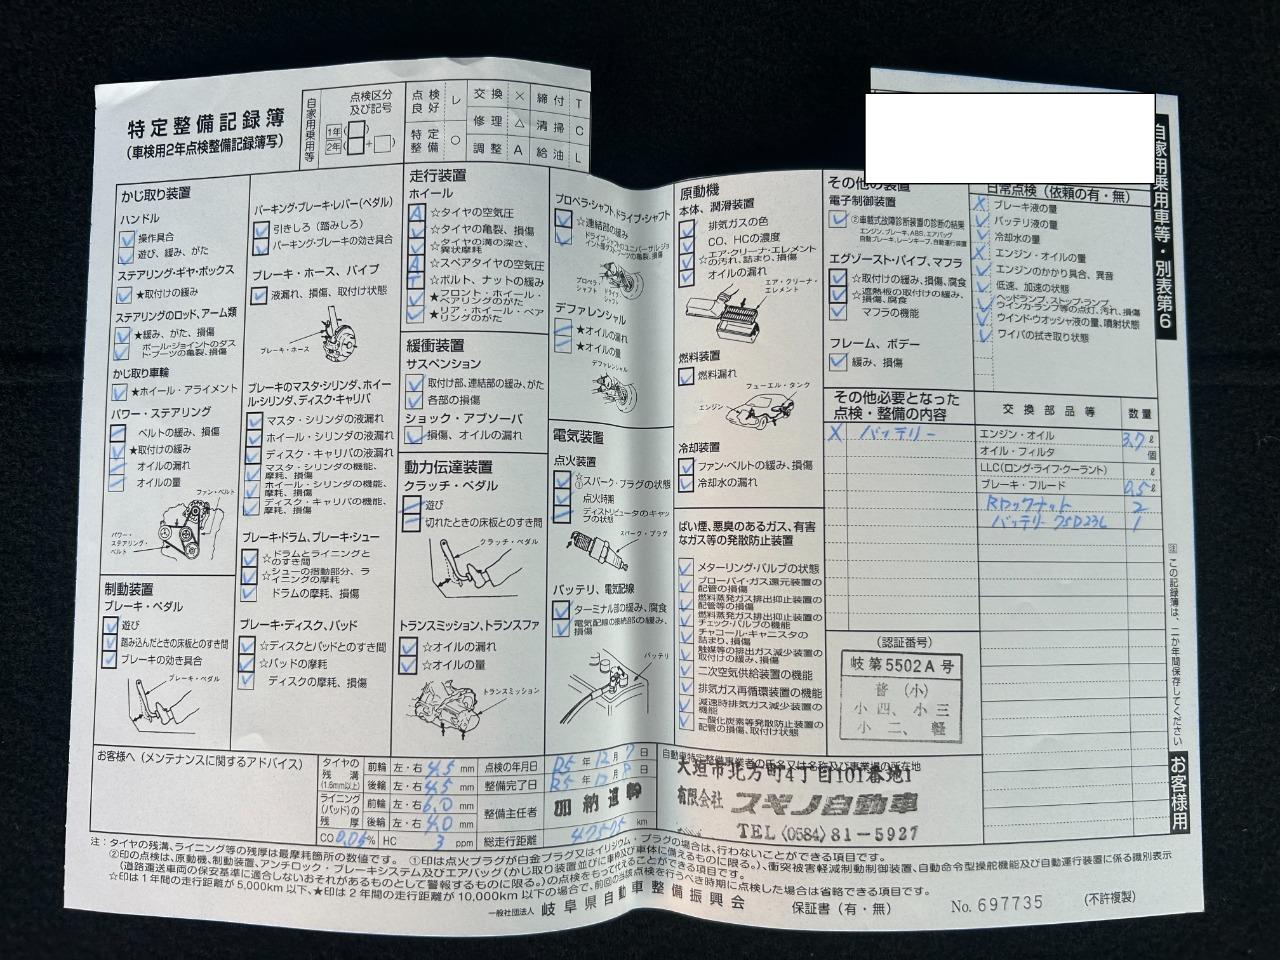 特定整備記録簿
(車検用2年点検整備記録簿写)
自家用乗用等
点検区分及び記号
1年
2年
点検良好 レ
交換 ×
締付 T
修理 △
清掃 C
特定整備 ○
調整 A
給油 L
かじ取り装置
ハンドル
操作具合
遊び、緩み、がた
ステアリング・ギヤ・ボックス
★取付けの緩み
ステアリングのロッド、アーム類
★緩み、がた、損傷
ボール・ジョイントのダスト・ブーツの亀裂、損傷
かじ取り車輪
★ホイール・アライメント
パワー・ステアリング
ベルトの緩み、損傷
★取付けの緩み
オイルの漏れ
オイルの量
ファン・ベルト
パワー・ステアリング・ベルト
制動装置
ブレーキ・ペダル
遊び
踏み込んだときの床板とのすき間
ブレーキの効き具合
ブレーキ・ペダル
パーキング・ブレーキ・レバー(ペダル)
引きしろ(踏みしろ)
パーキング・ブレーキの効き具合
ブレーキ・ホース、パイプ
液漏れ、損傷、取付け状態
ブレーキ・ホース
ブレーキのマスタ・シリンダ、ホイール・シリンダ、ディスク・キャリパ
マスタ・シリンダの液漏れ
ホイール・シリンダの液漏れ
ディスク・キャリパの液漏れ
マスタ・シリンダの機能、摩耗、損傷
ホイール・シリンダの機能、摩耗、損傷
ディスク・キャリパの機能、摩耗、損傷
ブレーキ・ドラム、ブレーキ・シュー
☆ドラムとライニングとのすき間
☆シューの摺動部分、ライニングの摩耗
ドラムの摩耗、損傷
ブレーキ・ディスク、パッド
☆ディスクとパッドとのすき間
☆パッドの摩耗
ディスクの摩耗、損傷
走行装置
ホイール
A ☆タイヤの空気圧
☆タイヤの亀裂、損傷
☆タイヤの溝の深さ、異状摩耗
A ☆スペアタイヤの空気圧
T ☆ボルト、ナットの緩み
★フロント・ホイール・ベアリングのがた
★リア・ホイール・ベアリングのがた
緩衝装置
サスペンション
取付け部、連結部の緩み、がた
各部の損傷
ショック・アブソーバ
損傷、オイルの漏れ
動力伝達装置
クラッチ・ペダル
遊び
切れたときの床板とのすき間
クラッチ・ペダル
トランスミッション、トランスファ
☆オイルの漏れ
☆オイルの量
トランスミッション
プロペラ・シャフト、ドライブ・シャフト
☆連結部の緩み
ドライブ・シャフトのユニバーサル・ジョイント部のダスト・ブーツの亀裂、損傷
プロペラ・シャフト
ドライブ・シャフト
デファレンシャル
★オイルの漏れ
★オイルの量
デファレンシャル
電気装置
点火装置
☆①スパーク・プラグの状態
点火時期
ディストリビュータのキャップの状態
スパーク・プラグ
バッテリ、電気配線
ターミナル部の緩み、腐食
電気配線の接続部の緩み、損傷
バッテリ
原動機
本体、潤滑装置
排気ガスの色
CO、HCの濃度
☆エア・クリーナ・エレメントの汚れ、詰まり、損傷
オイルの漏れ
エア・クリーナ・エレメント
燃料装置
燃料漏れ
フューエル・タンク
エンジン
冷却装置
ファン・ベルトの緩み、損傷
冷却水の漏れ
ばい煙、悪臭のあるガス、有害なガス等の発散防止装置
メターリング・バルブの状態
ブローバイ・ガス還元装置の配管の損傷
燃料蒸発ガス排出抑止装置の配管等の損傷
燃料蒸発ガス排出抑止装置のチェック・バルブの機能
チャコール・キャニスタの詰まり、損傷
触媒等の排出ガス減少装置の取付けの緩み、損傷
二次空気供給装置の機能
排気ガス再循環装置の機能
減速時排気ガス減少装置の機能
一酸化炭素等発散防止装置の配管の損傷、取付状態
その他の装置
電子制御装置
②車載式故障診断装置の診断の結果
エンジン、ブレーキ、ABS、エアバッグ
自動ブレーキ、レーンキープ、自動運行装置
エグゾースト・パイプ、マフラ
☆取付けの緩み、損傷、腐食
☆遮熱板の取付けの緩み、損傷、腐食
マフラの機能
フレーム、ボデー
緩み、損傷
日常点検(依頼の有・無)
× ブレーキ液の量
バッテリ液の量
冷却水の量
× エンジン・オイルの量
エンジンのかかり具合、異音
低速、加速の状態
ヘッドランプ、ストップ・ランプ、ウインカ・ランプ等の点灯、汚れ、損傷
ウインド・ウオッシャ液の量、噴射状態
ワイパの拭き取り状態
その他必要となった点検・整備の内容
× バッテリー
交換部品等 数量
エンジン・オイル 3.7 ℓ
オイル・フィルタ 個
LLC(ロング・ライフ・クーラント) ℓ
ブレーキ・フルード 0.5 ℓ
Rロックナット 2
バッテリー 75D23L 1
(認証番号)
岐第5502A号
普(小)
小四、小三
小二、軽
自家用乗用車等・別表第6
注 この記録簿は、二か年間保存してください
お客様用
お客様へ(メンテナンスに関するアドバイス)
タイヤの残溝(1.6mm以上)
前輪 左・右 4.5 mm
後輪 左・右 4.5 mm
ライニング(パッド)の残厚
前輪 左・右 6.0 mm
後輪 左・右 4.0 mm
CO 0.06% HC 3 ppm
点検の年月日 R5年12月7日
整備完了日 R5年12月8日
整備主任者 加納
総走行距離 47575 km
自動車特定整備事業者の氏名又は名称及び事業場の所在地
大垣市北方町4丁目101番地1
有限会社 スギノ自動車
TEL(0584)81-5927
注:タイヤの残溝、ライニング等の残厚は最摩耗箇所の数値です。 ①印は点火プラグが白金プラグ又はイリジウム・プラグの場合は、行わないことができる項目です。
②印の点検は、原動機、制動装置、アンチロック・ブレーキシステム及びエアバッグ(かじ取り装置並びに車枠及び車体に備えるものに限る。)、衝突被害軽減制動制御装置、自動命令型操舵機能及び自動運行装置に係る識別表示
(道路運送車両の保安基準に適合しないおそれがあるものとして警報するものに限る。)の点検をもって代えることができる項目です。
☆印は1年間の走行距離が5,000km以下、★印は2年間の走行距離が10,000km以下の場合で、前回の当該点検を行うべき時期に点検した場合は省略できる項目です。
一般社団法人 岐阜県自動車整備振興会
保証書(有・無)
No.697735
(不許複製)